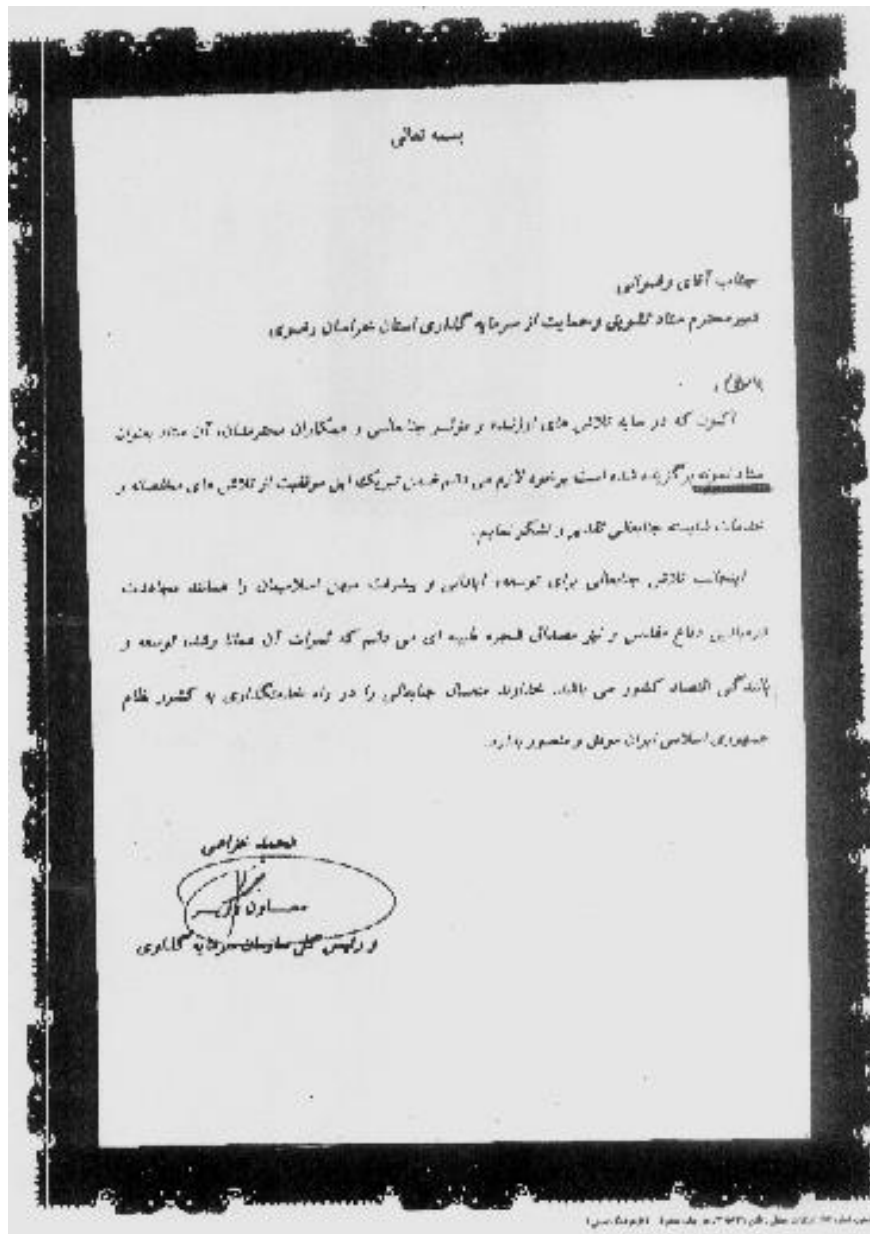 بسمه تعالی
جناب آقای رضوانی
دبیر محترم ستاد تشویق و حمایت از سرمایه گذاری استان خراسان رضوی
باسلام،
اکنون که در سایه تلاش های ارزنده و موثر جنابعالی و همکاران محترمتان، آن ستاد بعنوان
ستاد نمونه برگزیده شده است برخود لازم می دانم ضمن تبریک این موفقیت از تلاش های مخلصانه و
خدمات شایسته جنابعالی تقدیر و تشکر نمایم.
اینجانب تلاش جنابعالی برای توسعه، آبادانی و پیشرفت میهن اسلامیمان را همانند مجاهدت
درمیادین دفاع مقدس و نیز مصداق شجره طیبه ای می دانم که ثمرات آن همانا رشد، توسعه و
بالندگی اقتصاد کشور می باشد. خداوند متعال جنابعالی را در راه خدمتگذاری به کشور نظام
جمهوری اسلامی ایران موفق و منصور بدارد.
محمد خزاعی
معاون وزیر
و رئیس کل سازمان سرمایه گذاری